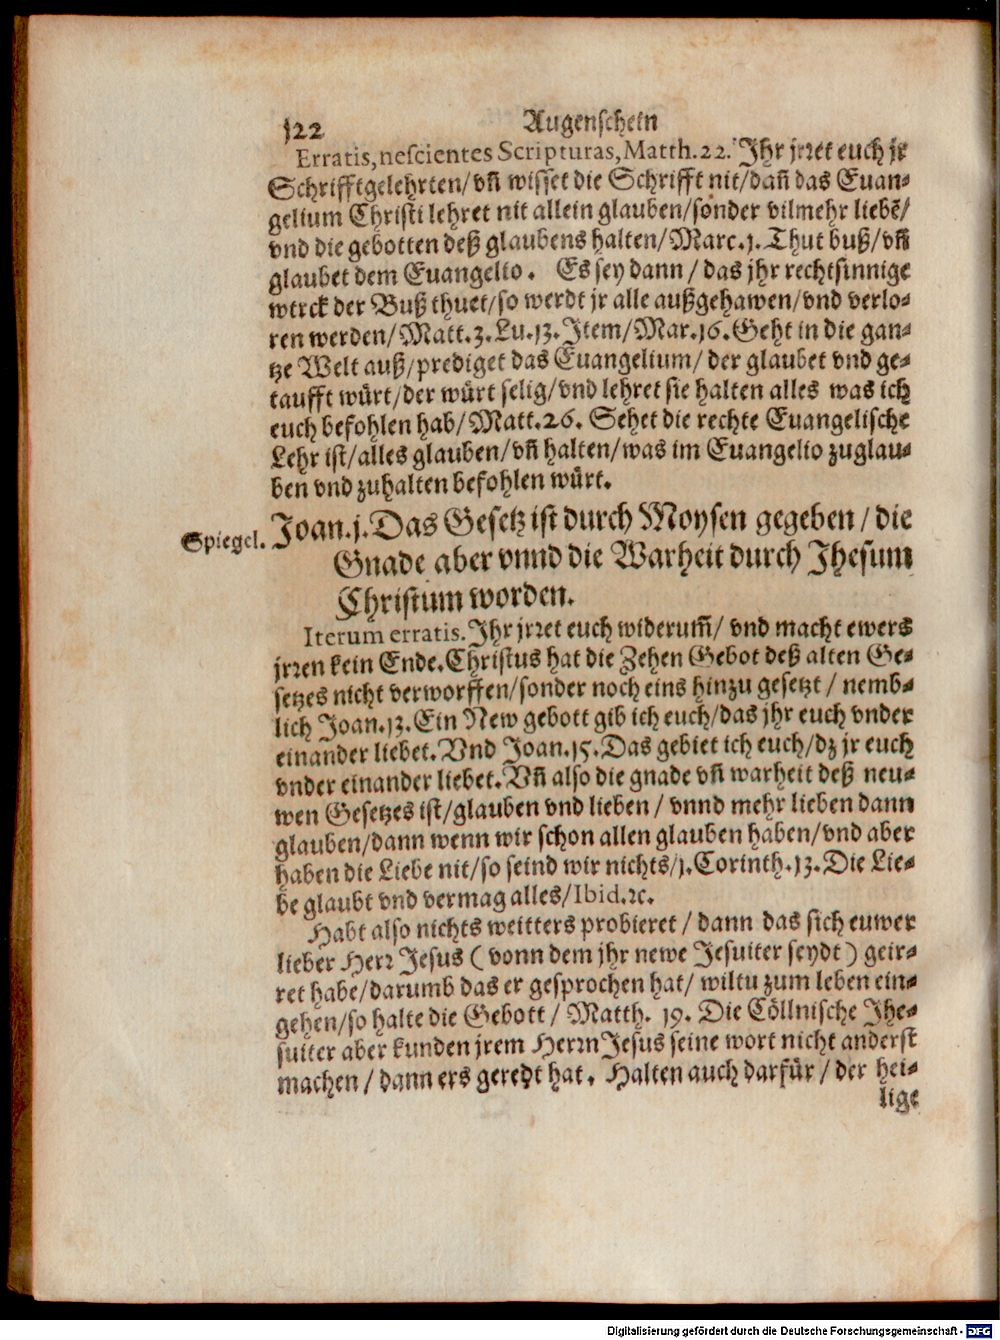 122 Augenschein
Erratis, nescientes Scripturas, Matth. 22. Ihr jrret euch jr
Schrifftgelehrten/ vñ wisset die Schrifft nit/ dañ das Euan-
gelium Christi lehret nit allein glauben/ sonder vilmehr liebē/
vnd die gebotten deß glaubens halten/ Marc. 1. Thut buß/ vñ
glaubet dem Euangelio. Es sey dann/ das jhr rechtsinnige
wirck der Buß thuet/ so werdt jr alle außgehawen/ vnd verlo-
ren werden/ Matt. 3. Lu. 13. Item/ Mar. 16. Geht in die gan-
tze Welt auß/ prediget das Euangelium/ der glaubet vnd ge-
taufft würt/ der würt selig/ vnd lehret sie halten alles was ich
euch befohlen hab/ Matt. 26. Sehet die rechte Euangelische
Lehr ist/ alles glauben/ vñ halten/ was im Euangelio zuglau-
ben vnd zuhalten befohlen würt.
Spiegel. Joan. j. Das Gesetz ist durch Moysen gegeben/ die
Gnade aber vnnd die Warheit durch Jhesum
Christum worden.
Iterum erratis. Ihr jrret euch widerum̃/ vnd macht ewers
jrren kein Ende. Christus hat die Zehen Gebot deß alten Ge-
setzes nicht verworffen/ sonder noch eins hinzu gesetzt/ nemb-
lich Joan. 13. Ein New gebott gib ich euch/ das jhr euch vnder
einander liebet. Vnd Joan. 15. Das gebiet ich euch/ dz jr euch
vnder einander liebet. Vñ also die gnade vñ warheit deß neu-
wen Gesetzes ist/ glauben vnd lieben/ vnnd mehr lieben dann
glauben/ dann wenn wir schon allen glauben haben/ vnd aber
haben die Liebe nit/ so seind wir nichts/ 1. Corinth. 13. Die Lie-
be glaubt vnd vermag alles/ Ibid. ꝛc.
Habt also nichts weitters probieret/ dann das sich euwer
lieber Herr Jesus (vonn dem jhr newe Jesuiter seydt) geir-
ret habe/ darumb das er gesprochen hat/ wiltu zum leben ein-
gehen/ so halte die Gebott/ Matth. 19. Die Cöllnische Jhe-
suiter aber kunden jrem Herrn Jesus seine wort nicht anderst
machen/ dann ers geredt hat. Halten auch darfür/ der hei-
lige
Digitalisierung gefördert durch die Deutsche Forschungsgemeinschaft - DFG